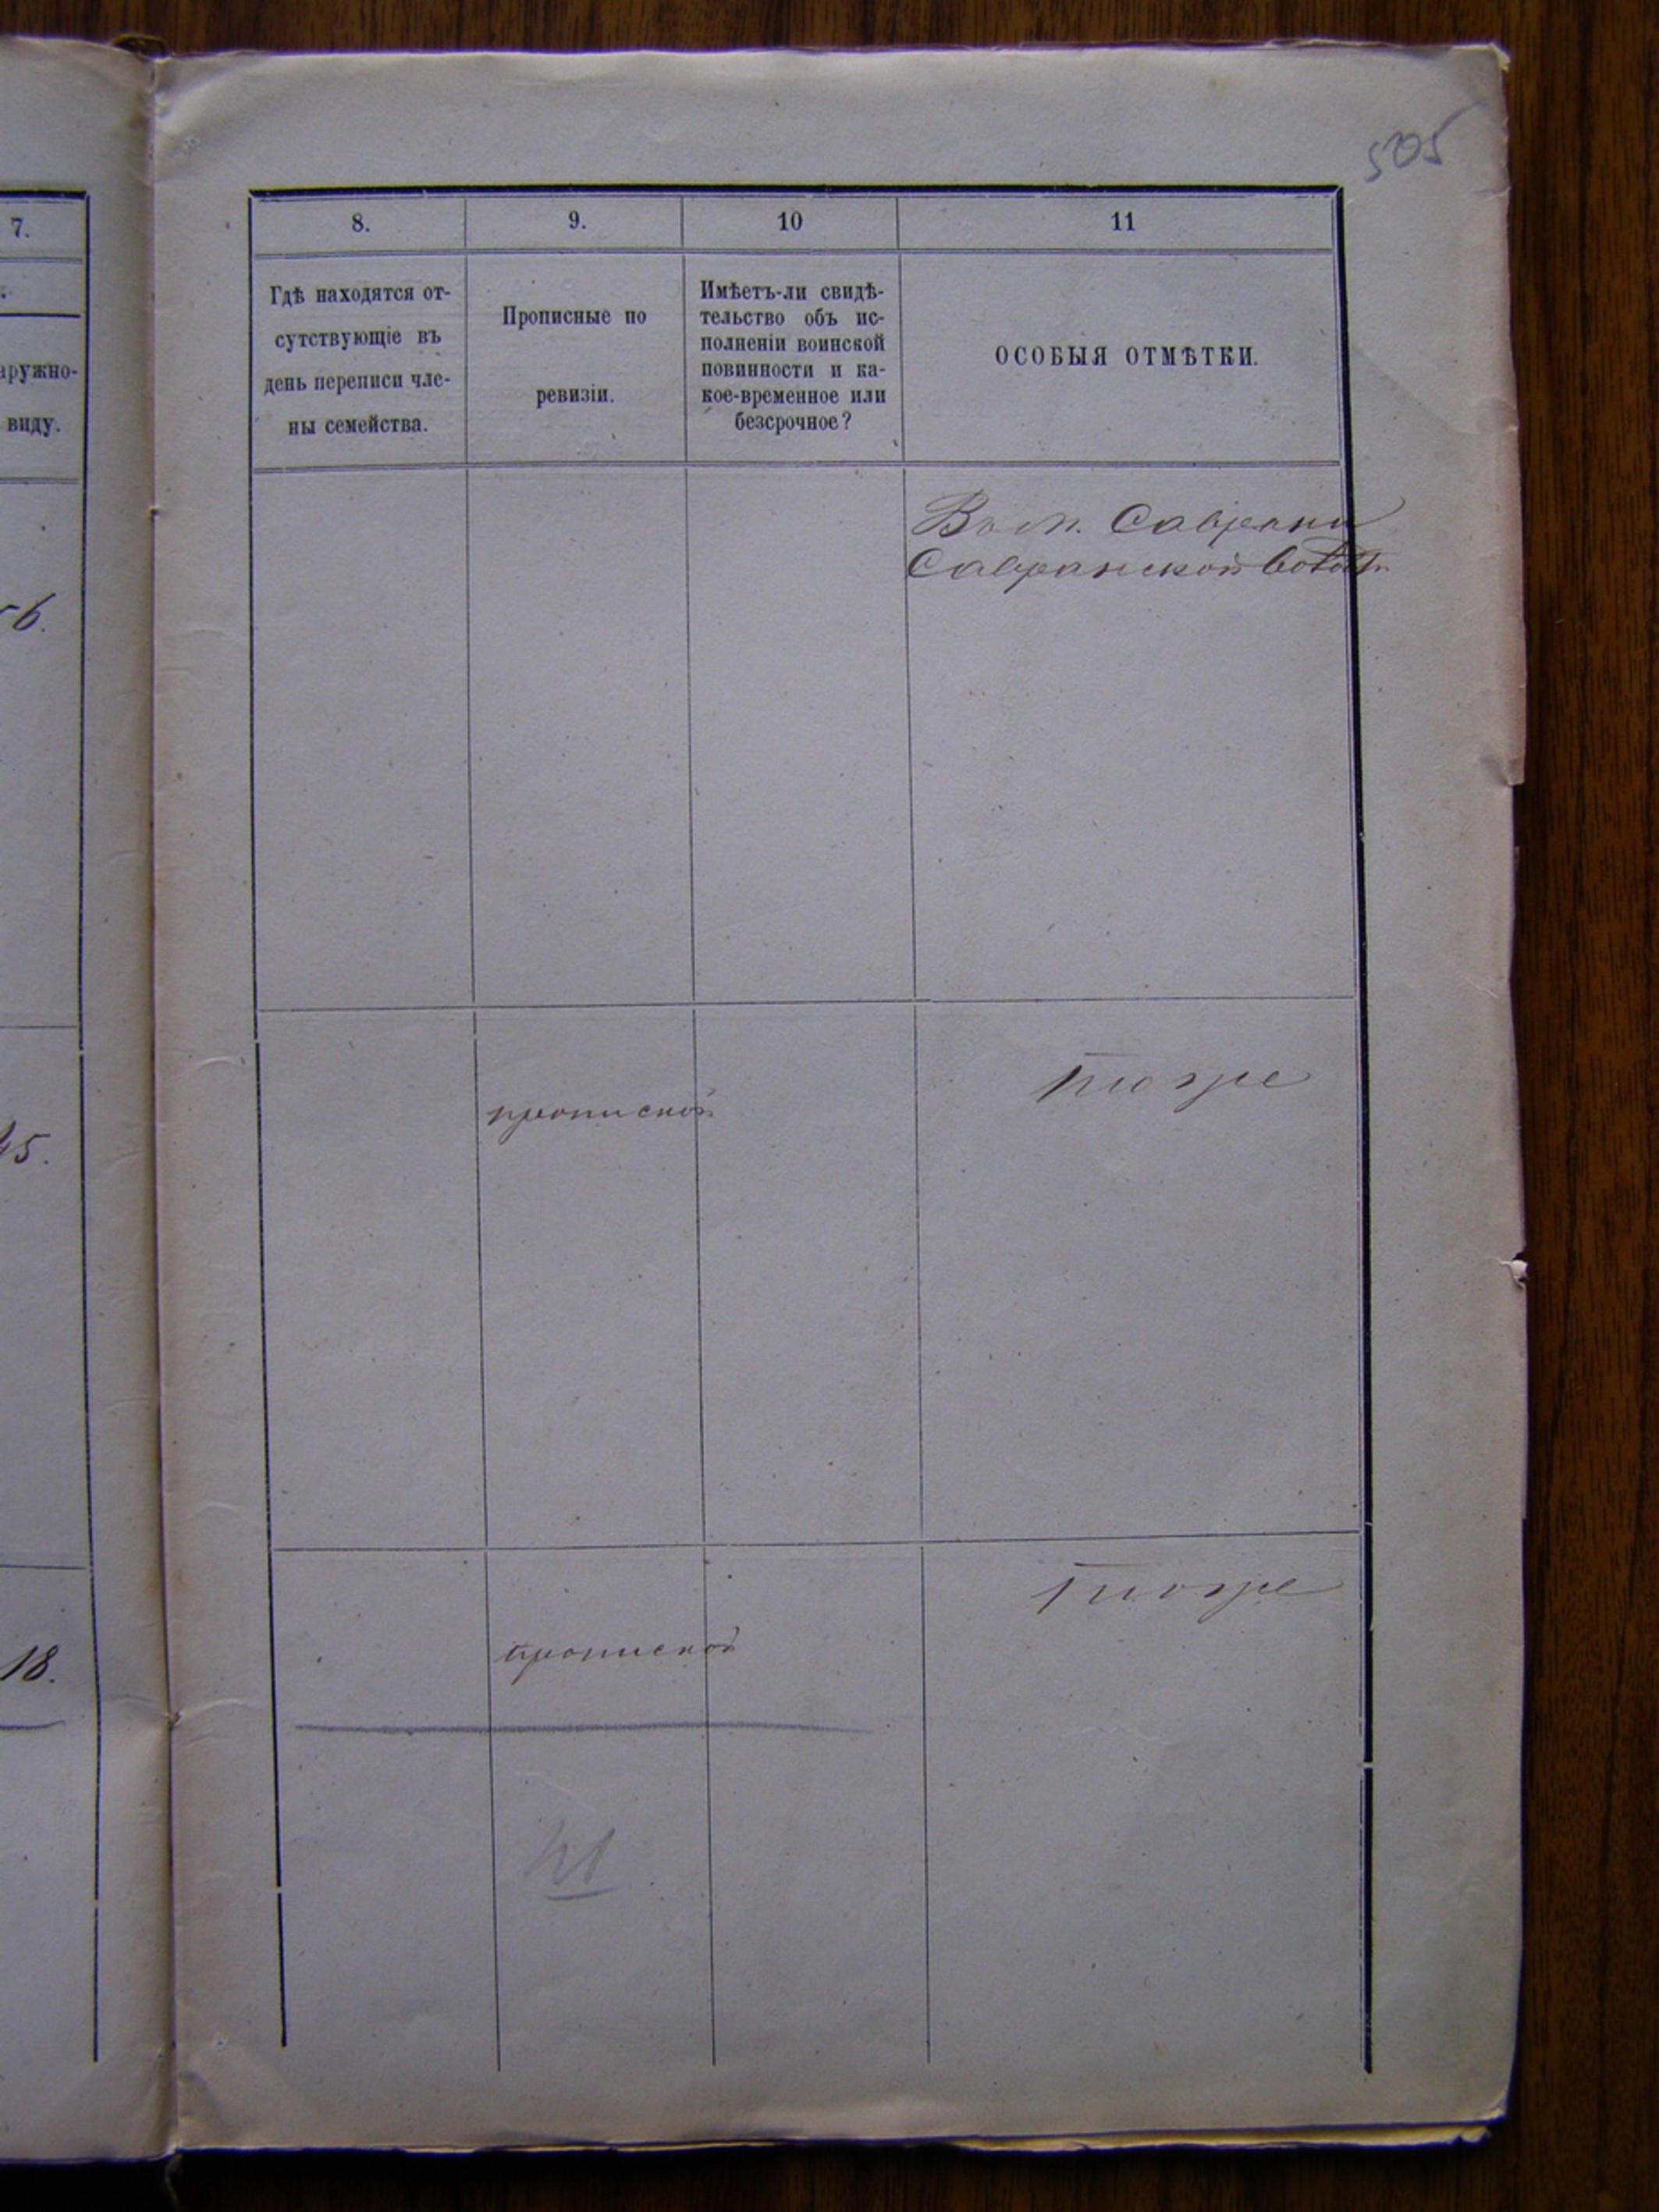 505
7.
аружно-
виду.
56.
45.
18.
8.
9.
10
11
Гдѣ находятся от-
сутствующіе въ
день переписи чле-
ны семейства.
Прописные по
ревизіи.
Имѣетъ-ли свидѣ-
тельство объ ис-
полненіи воинской
повинности и ка-
кое-временное или
безсрочное?
ОСОБЫЯ ОТМѢТКИ.
Въ м. Саврани
Савранской волости
тоже
прописной
тоже
прописной